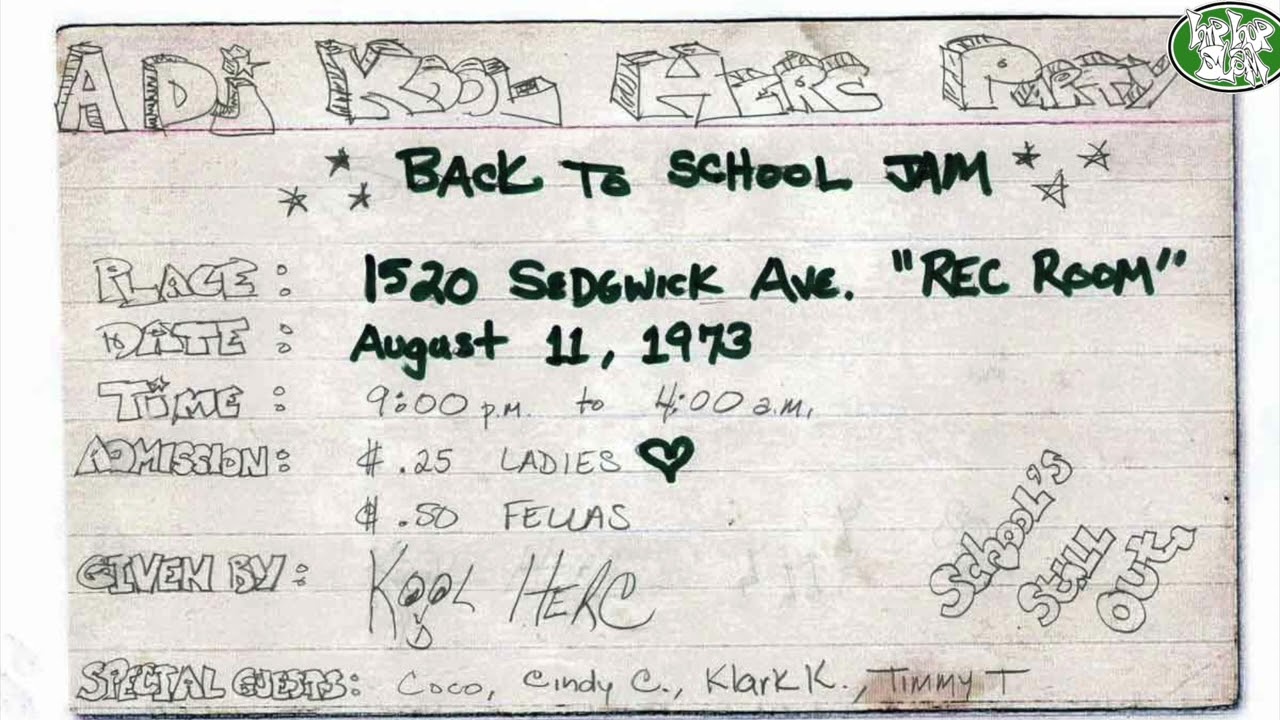 A DJ KOOL HERC PARTY
HIP HOP SLAM
BACK TO SCHOOL JAM
PLACE: 1520 SEDGWICK AVE. "REC ROOM"
DATE: August 11, 1973
TIME: 9:00 p.m. to 4:00 a.m.
ADMISSION: $.25 LADIES
$.50 FELLAS
GIVEN BY: KOOL HERC
SCHOOL'S
STILL
OUT.
SPECIAL GUESTS: Coco, Cindy C., Klark K., Timmy T